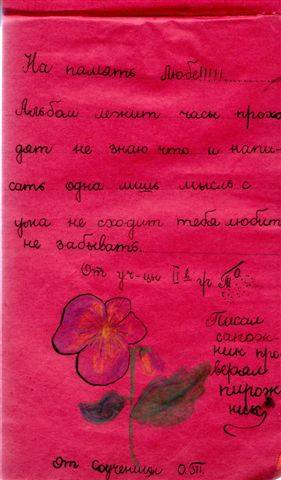 На память Любе!!!!!
Альбом лежит часы прохо
дят не знаю что и напи-
сать одна лишь мысль с
ума не сходит тебя любит
не забывать.
От уч-цы II в гр.
Писал
сапож-
ник про
верял
пирож
ник
От соученицы О.П.